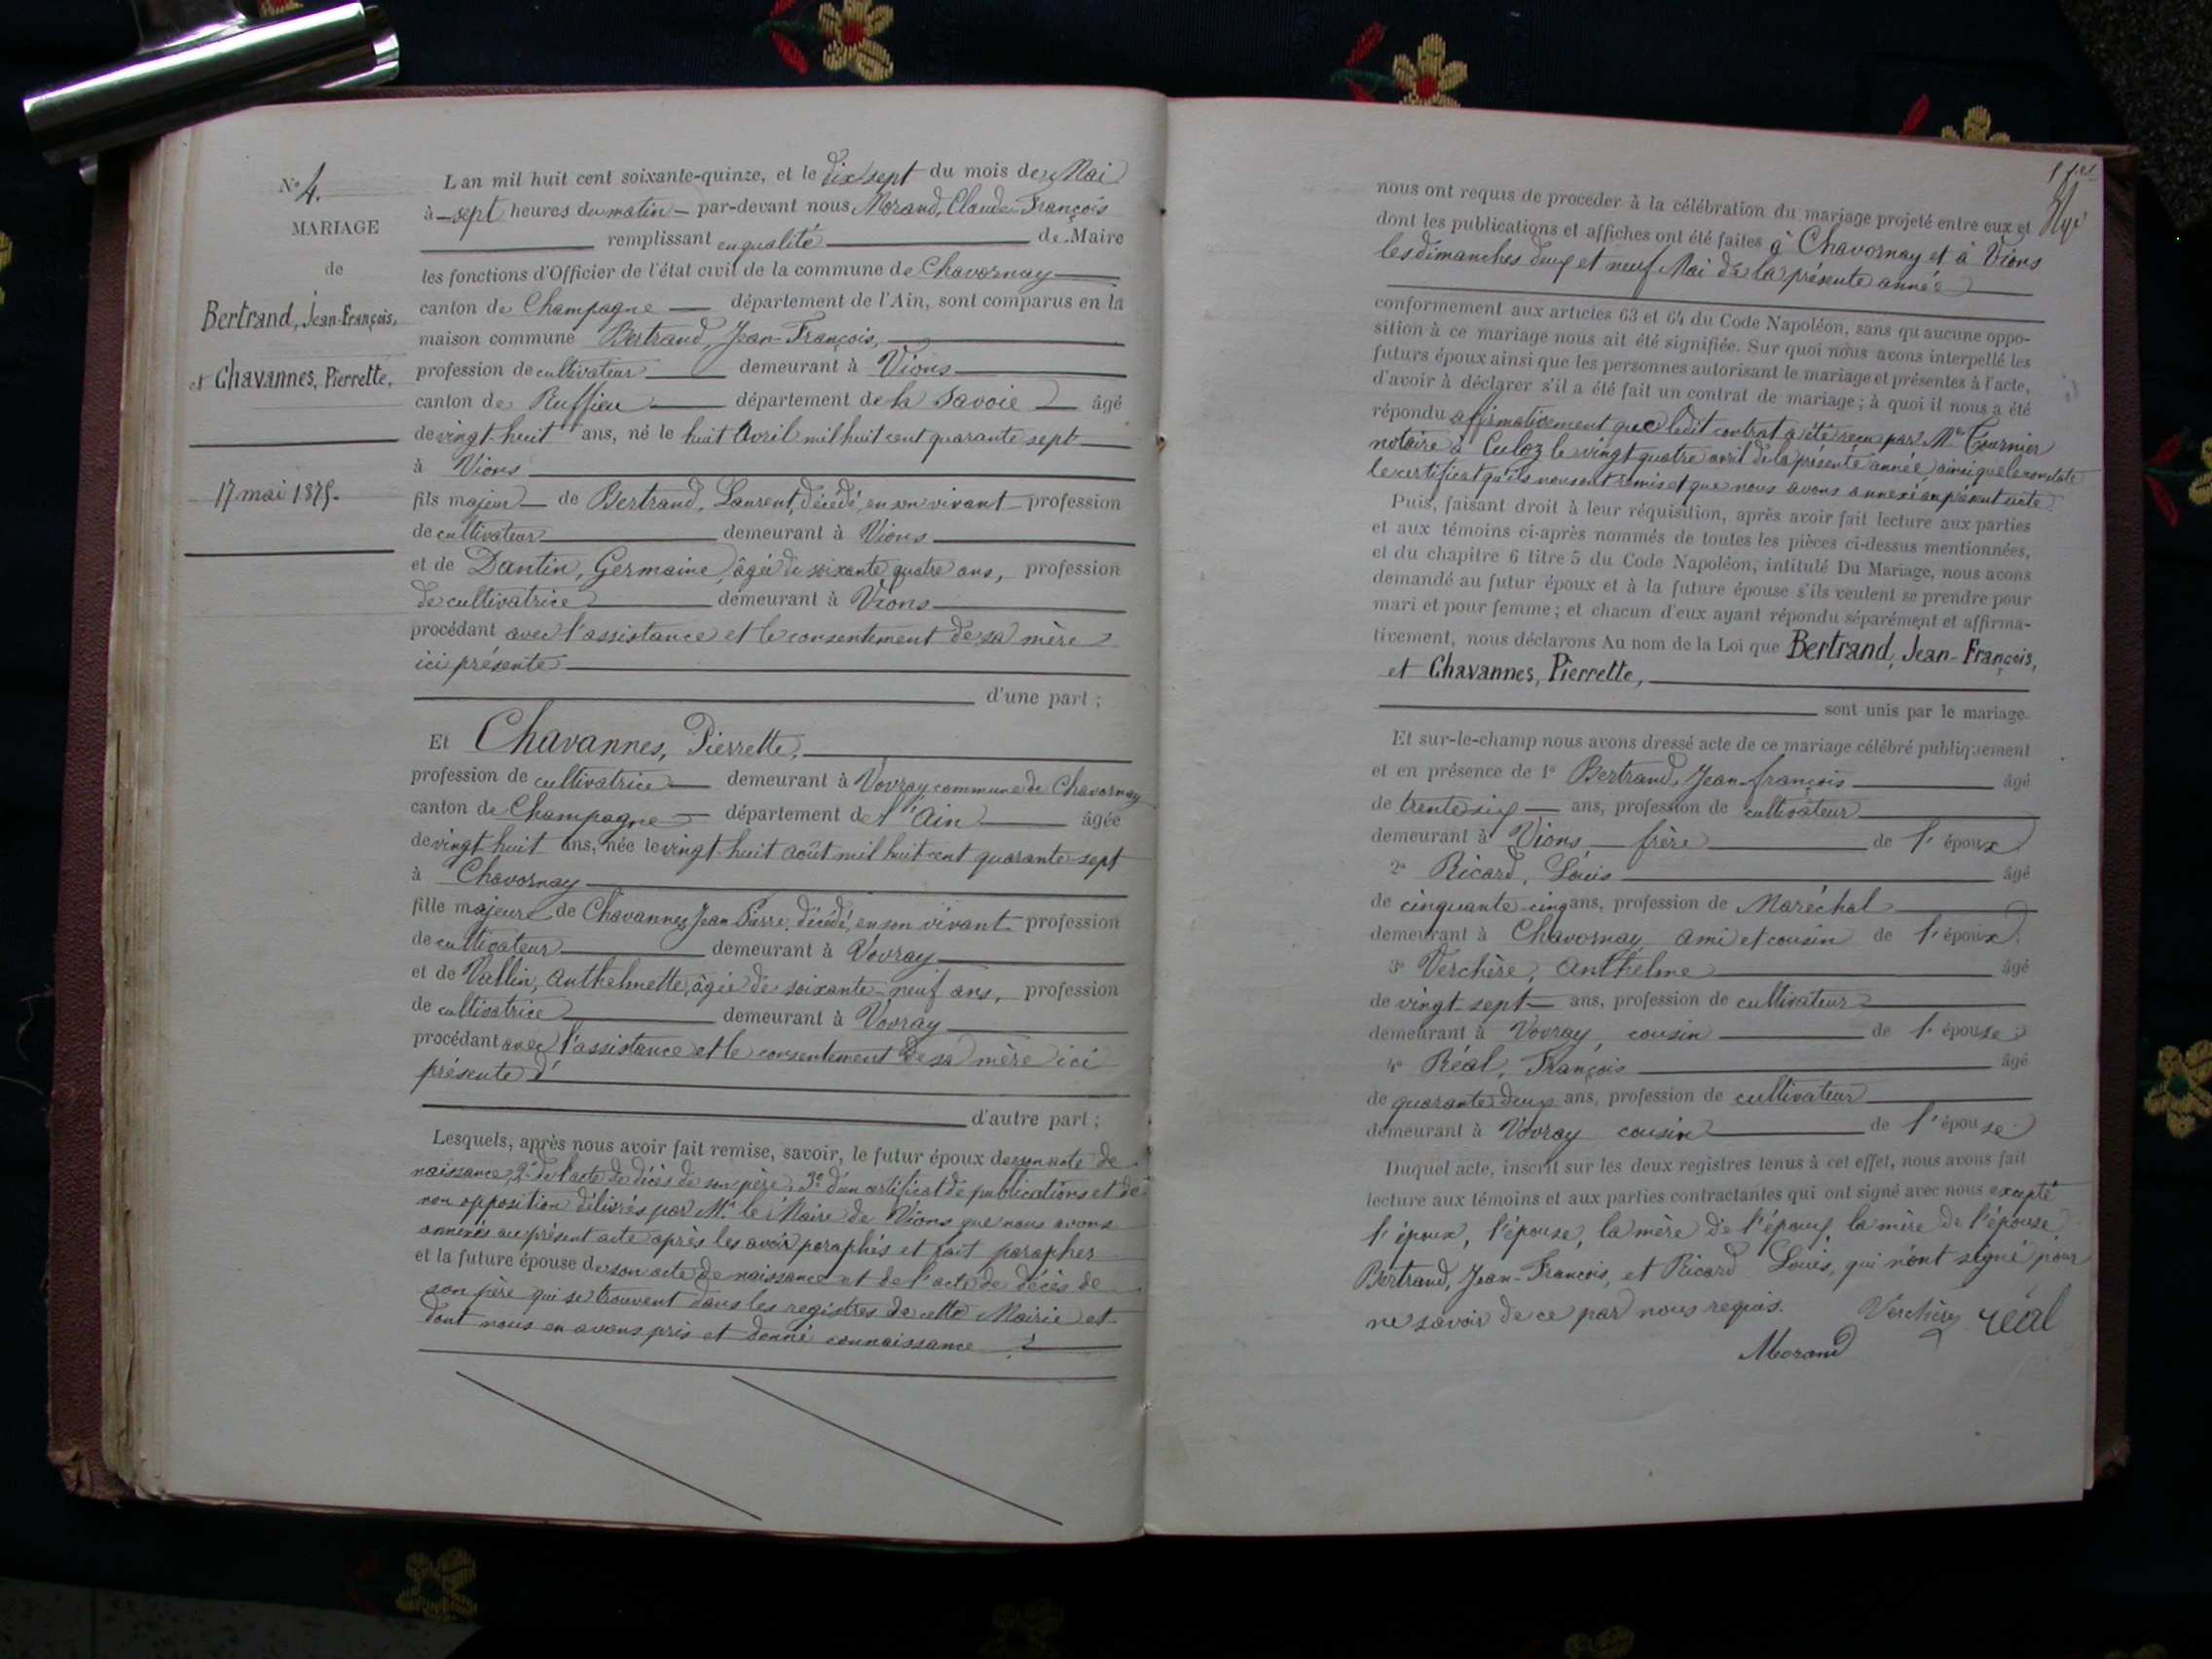 N° 4.
MARIAGE
de
Bertrand, Jean-François,
et Chavannes, Pierrette,
17 mai 1875.
L'an mil huit cent soixante-quinze, et le dix sept du mois de Mai
à sept heures du matin par-devant nous Morand, Claude François
remplissant en qualité de Maire
les fonctions d'Officier de l'état civil de la commune de Chavornay
canton de Champagne département de l'Ain, sont comparus en la
maison commune Bertrand, Jean-François,
profession de cultivateur demeurant à Vions
canton de Ruffieu département de la Savoie âgé
de vingt-huit ans, né le huit Avril mil huit cent quarante sept
à Vions
fils majeur de Bertrand, Laurent, décédé, en son vivant profession
de cultivateur demeurant à Vions
et de Dantin, Germaine, âgée de soixante quatre ans, profession
de cultivatrice demeurant à Vions
procédant avec l'assistance et le consentement de sa mère
ici présente
d'une part ;
Et Chavannes, Pierrette,
profession de cultivatrice demeurant à Vovray commune de Chavornay
canton de Champagne département de l'Ain âgée
de vingt-huit ans, née le vingt-huit août mil huit cent quarante-sept
à Chavornay
fille majeure de Chavannes Jean Pierre, décédé, en son vivant profession
de cultivateur demeurant à Vovray
et de Vallin, Anthelmette, âgée de soixante-neuf ans, profession
de cultivatrice demeurant à Vovray
procédant avec l'assistance et le consentement de sa mère ici
présente
d'autre part ;
Lesquels, après nous avoir fait remise, savoir, le futur époux de son acte de
naissance, 2° de l'acte de décès de son père, 3° d'un certificat de publications et de
non opposition délivrés par Mr le Maire de Vions que nous avons
annexés au présent acte après les avoir paraphés et fait parapher
et la future épouse de son acte de naissance et de l'acte de décès de
son père qui se trouvent dans les registres de cette Mairie et
dont nous en avons pris et donné connaissance
nous ont requis de procéder à la célébration du mariage projeté entre eux et
dont les publications et affiches ont été faites à Chavornay et à Vions
les dimanches deux et neuf Mai de la présente année
conformément aux articles 63 et 64 du Code Napoléon, sans qu'aucune oppo-
sition à ce mariage nous ait été signifiée. Sur quoi nous avons interpellé les
futurs époux ainsi que les personnes autorisant le mariage et présentes à l'acte,
d'avoir à déclarer s'il a été fait un contrat de mariage ; à quoi il nous a été
répondu affirmativement que ledit contrat a été reçu par Me Tournier
notaire à Culoz le vingt quatre avril de la présente année ainsi que le constate
le certificat qu'ils nous ont remis et que nous avons annexé au présent acte.
Puis, faisant droit à leur réquisition, après avoir fait lecture aux parties
et aux témoins ci-après nommés de toutes les pièces ci-dessus mentionnées,
et du chapitre 6 titre 5 du Code Napoléon, intitulé Du Mariage, nous avons
demandé au futur époux et à la future épouse s'ils veulent se prendre pour
mari et pour femme ; et chacun d'eux ayant répondu séparément et affirma-
tivement, nous déclarons Au nom de la Loi que Bertrand, Jean-François,
et Chavannes, Pierrette,
sont unis par le mariage.
Et sur-le-champ nous avons dressé acte de ce mariage célébré publiquement
et en présence de 1° Bertrand, Jean-françois âgé
de trente six ans, profession de cultivateur
demeurant à Vions frère de l'époux
2° Ricard, Louis âgé
de cinquante-cinq ans, profession de Maréchal
demeurant à Chavornay ami et cousin de l'époux
3° Verchère, Anthelme âgé
de vingt-sept ans, profession de cultivateur
demeurant à Vovray, cousin de l'épouse
4° Réal, François âgé
de quarante deux ans, profession de cultivateur
demeurant à Vovray cousin de l'épouse
Duquel acte, inscrit sur les deux registres tenus à cet effet, nous avons fait
lecture aux témoins et aux parties contractantes qui ont signé avec nous excepté
l'époux, l'épouse, la mère de l'époux, la mère de l'épouse,
Bertrand, Jean-François, et Ricard Louis, qui n'ont signé pour
ne savoir de ce par nous requis. Verchère réal
Morand